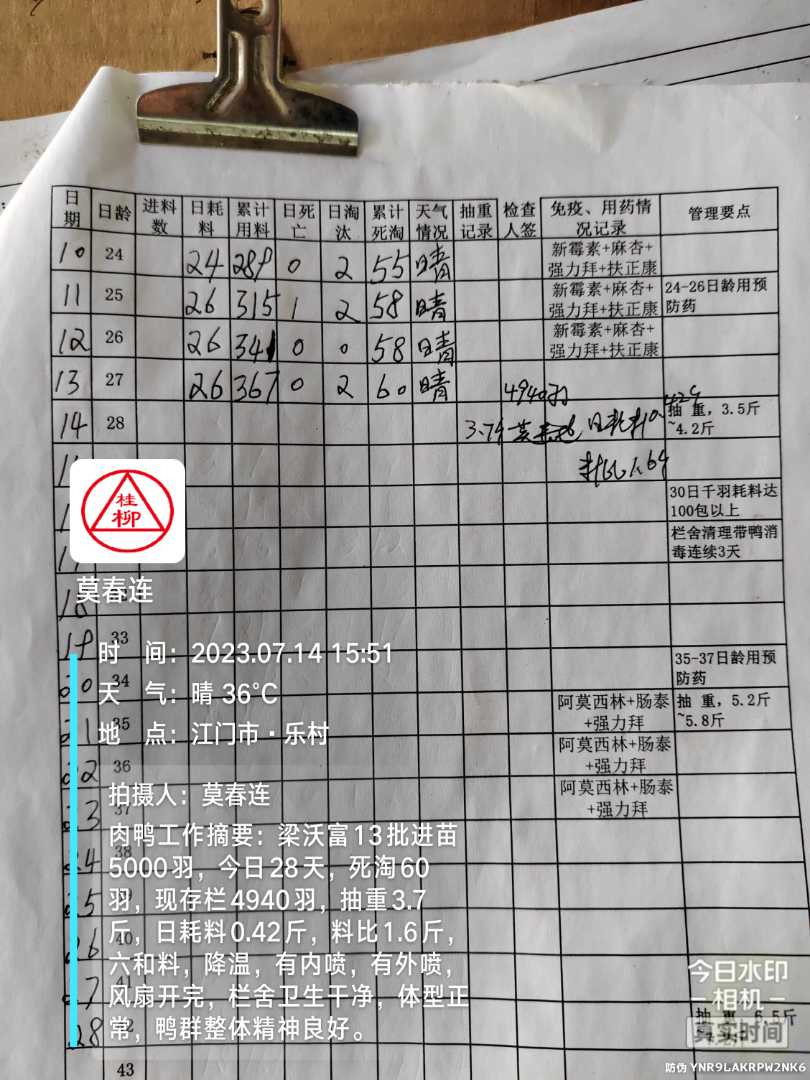 日期 日龄 进料数 日耗料 累计用料 日死亡 日淘汰 累计死淘 天气情况 抽重记录 检查人签 免疫、用药情况记录 管理要点
10 24 24 289 0 2 55 晴 新霉素+麻杏+强力拜+扶正康
11 25 26 315 1 2 58 晴 新霉素+麻杏+强力拜+扶正康 24-26日龄用预防药
12 26 26 341 0 0 58 晴 新霉素+麻杏+强力拜+扶正康
13 27 26 367 0 2 60 晴
4940羽
14 28 3.7斤 日耗料0.42斤 抽 重，3.5斤~4.2斤
料比1.64
30日千羽耗料达100包以上
栏舍清理带鸭消毒连续3天
桂柳
莫春连
18
19 33
时 间：2023.07.14 15:51
35-37日龄用预防药
20 34
天 气：晴 36°C
21 35 阿莫西林+肠泰+强力拜 抽 重，5.2斤~5.8斤
地 点：江门市·乐村
22 36 阿莫西林+肠泰+强力拜
23 37 阿莫西林+肠泰+强力拜
拍摄人：莫春连
肉鸭工作摘要：梁沃富13批进苗
24 38
5000羽，今日28天，死淘60
25 39
羽，现存栏4940羽，抽重3.7
斤，日耗料0.42斤，料比1.6斤，
26 40
六和料，降温，有内喷，有外喷，
27 41
风扇开完，栏舍卫生干净，体型正
28 42 抽 重 6.5斤
常，鸭群整体精神良好。
43
今日水印
相机
真实时间
防伪 YNR9LAKRPW2NK6